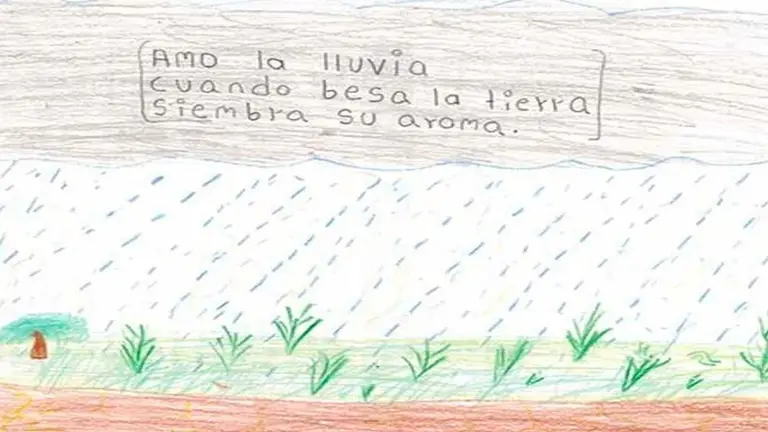 AMO la lluvia
cuando besa la tierra
siembra su aroma.